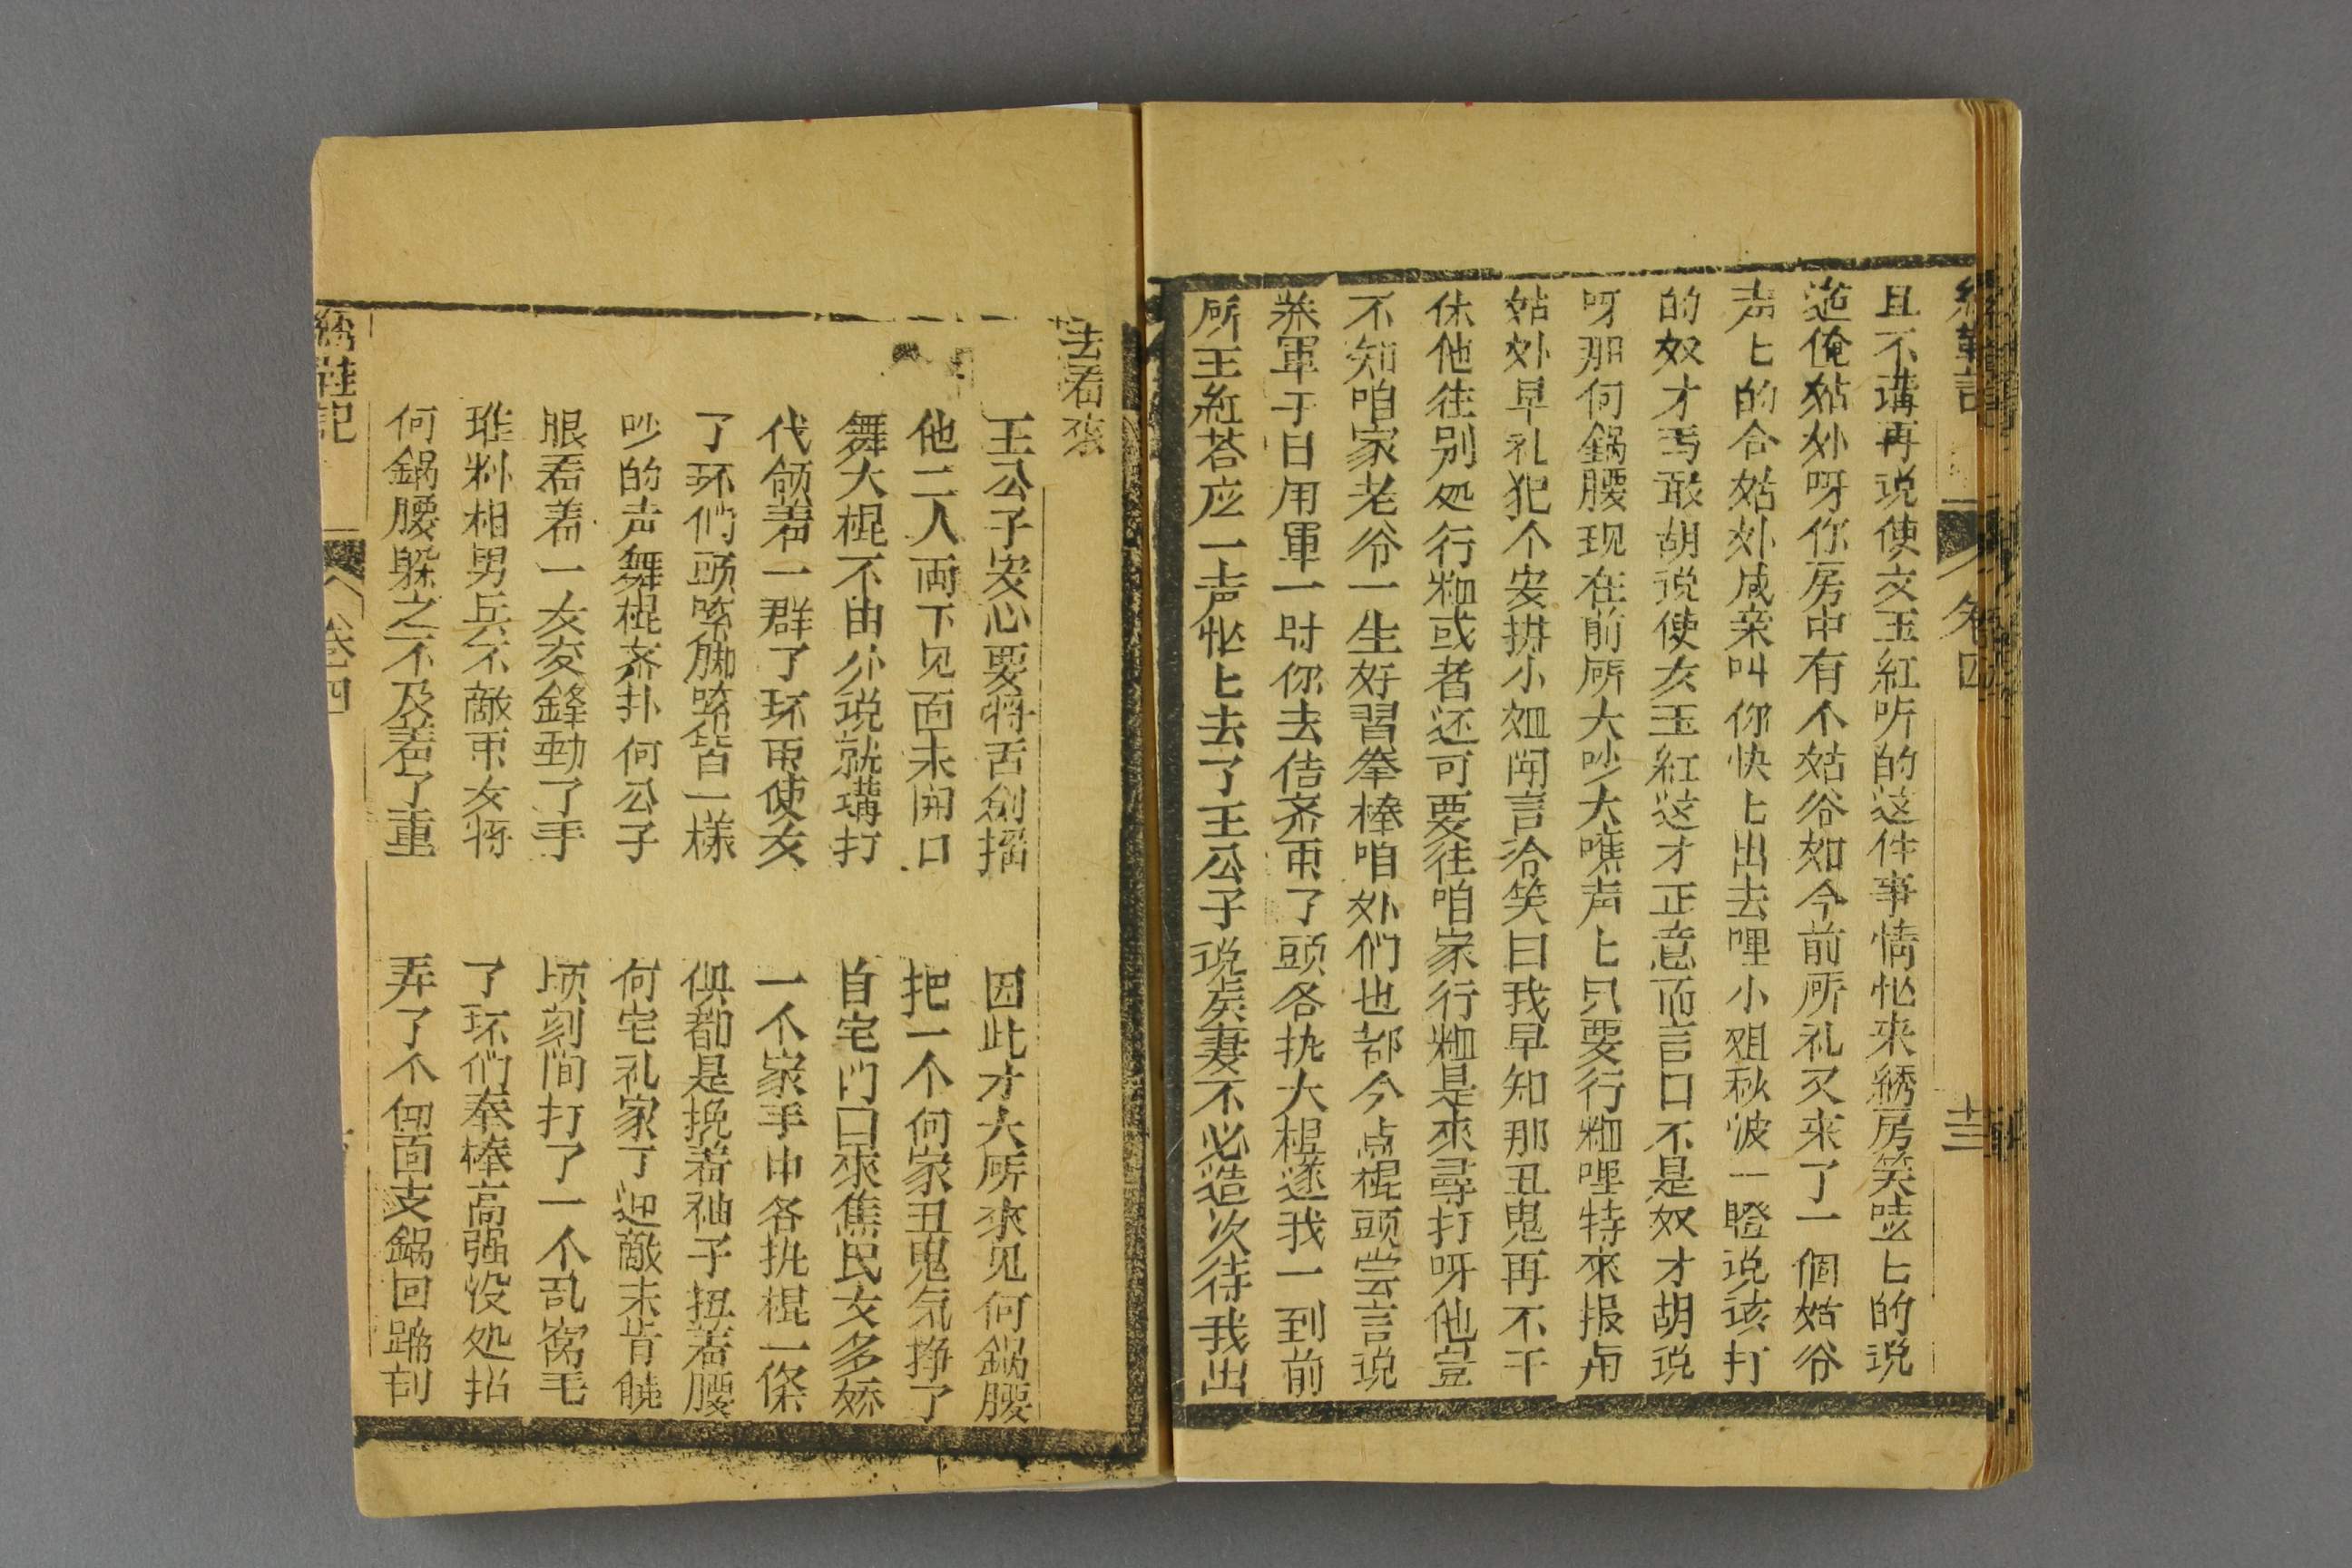 繡鞋記 卷四 十三
且不講再说使女玉紅听的这件事情忙来綉房笑嘻匕的说
道俺姑外呀你房中有个姑爷如今前所礼又来了一個姑爷
声匕的合姑外成亲叫你快匕出去哩小姐秋波一瞪说该打
的奴才焉敢胡说使女玉紅这才正意而言口不是奴才胡说
呀那何鍋腰现在前所大吵大嚷声匕只要行粗哩特來报与
姑外早礼犯个安排小姐闻言冷笑曰我早知那丑鬼再不干
休他往别処行粗或者还可要往咱家行粗是來尋打呀他豈
不知咱家老爷一生好習拳棒咱外们也都今点棍頭尝言说
养軍千日用軍一时你去佶齐甪了頭各执大棍遂我一到前
所玉紅荅应一声忙匕去了王公子说贤妻不必造次待我出
去看來
王公子安心要将舌劍招 因此才大所來见何鍋腰
他二人両下见面未開口 把一个何家丑鬼気挣了
舞大棍不由分说就講打 自宅门口來焦民女多娇
代领着一群了环甪使女 一个家手中各执棍一條
了环们頭紮脚紮皆一樣 俱都是挽着袖子扭着腰
吵的声舞棍齐扑何公子 何宅礼家丁迎敵未肯饒
眼看着一女交鋒動了手 顷刻间打了一个乱窝毛
谁料相男兵不敵甪女将 了环们奉棒高强没処招
何鍋腰躲之不及着了重 弄了个仰面支鍋回蹄刨
繡鞋記 卷四